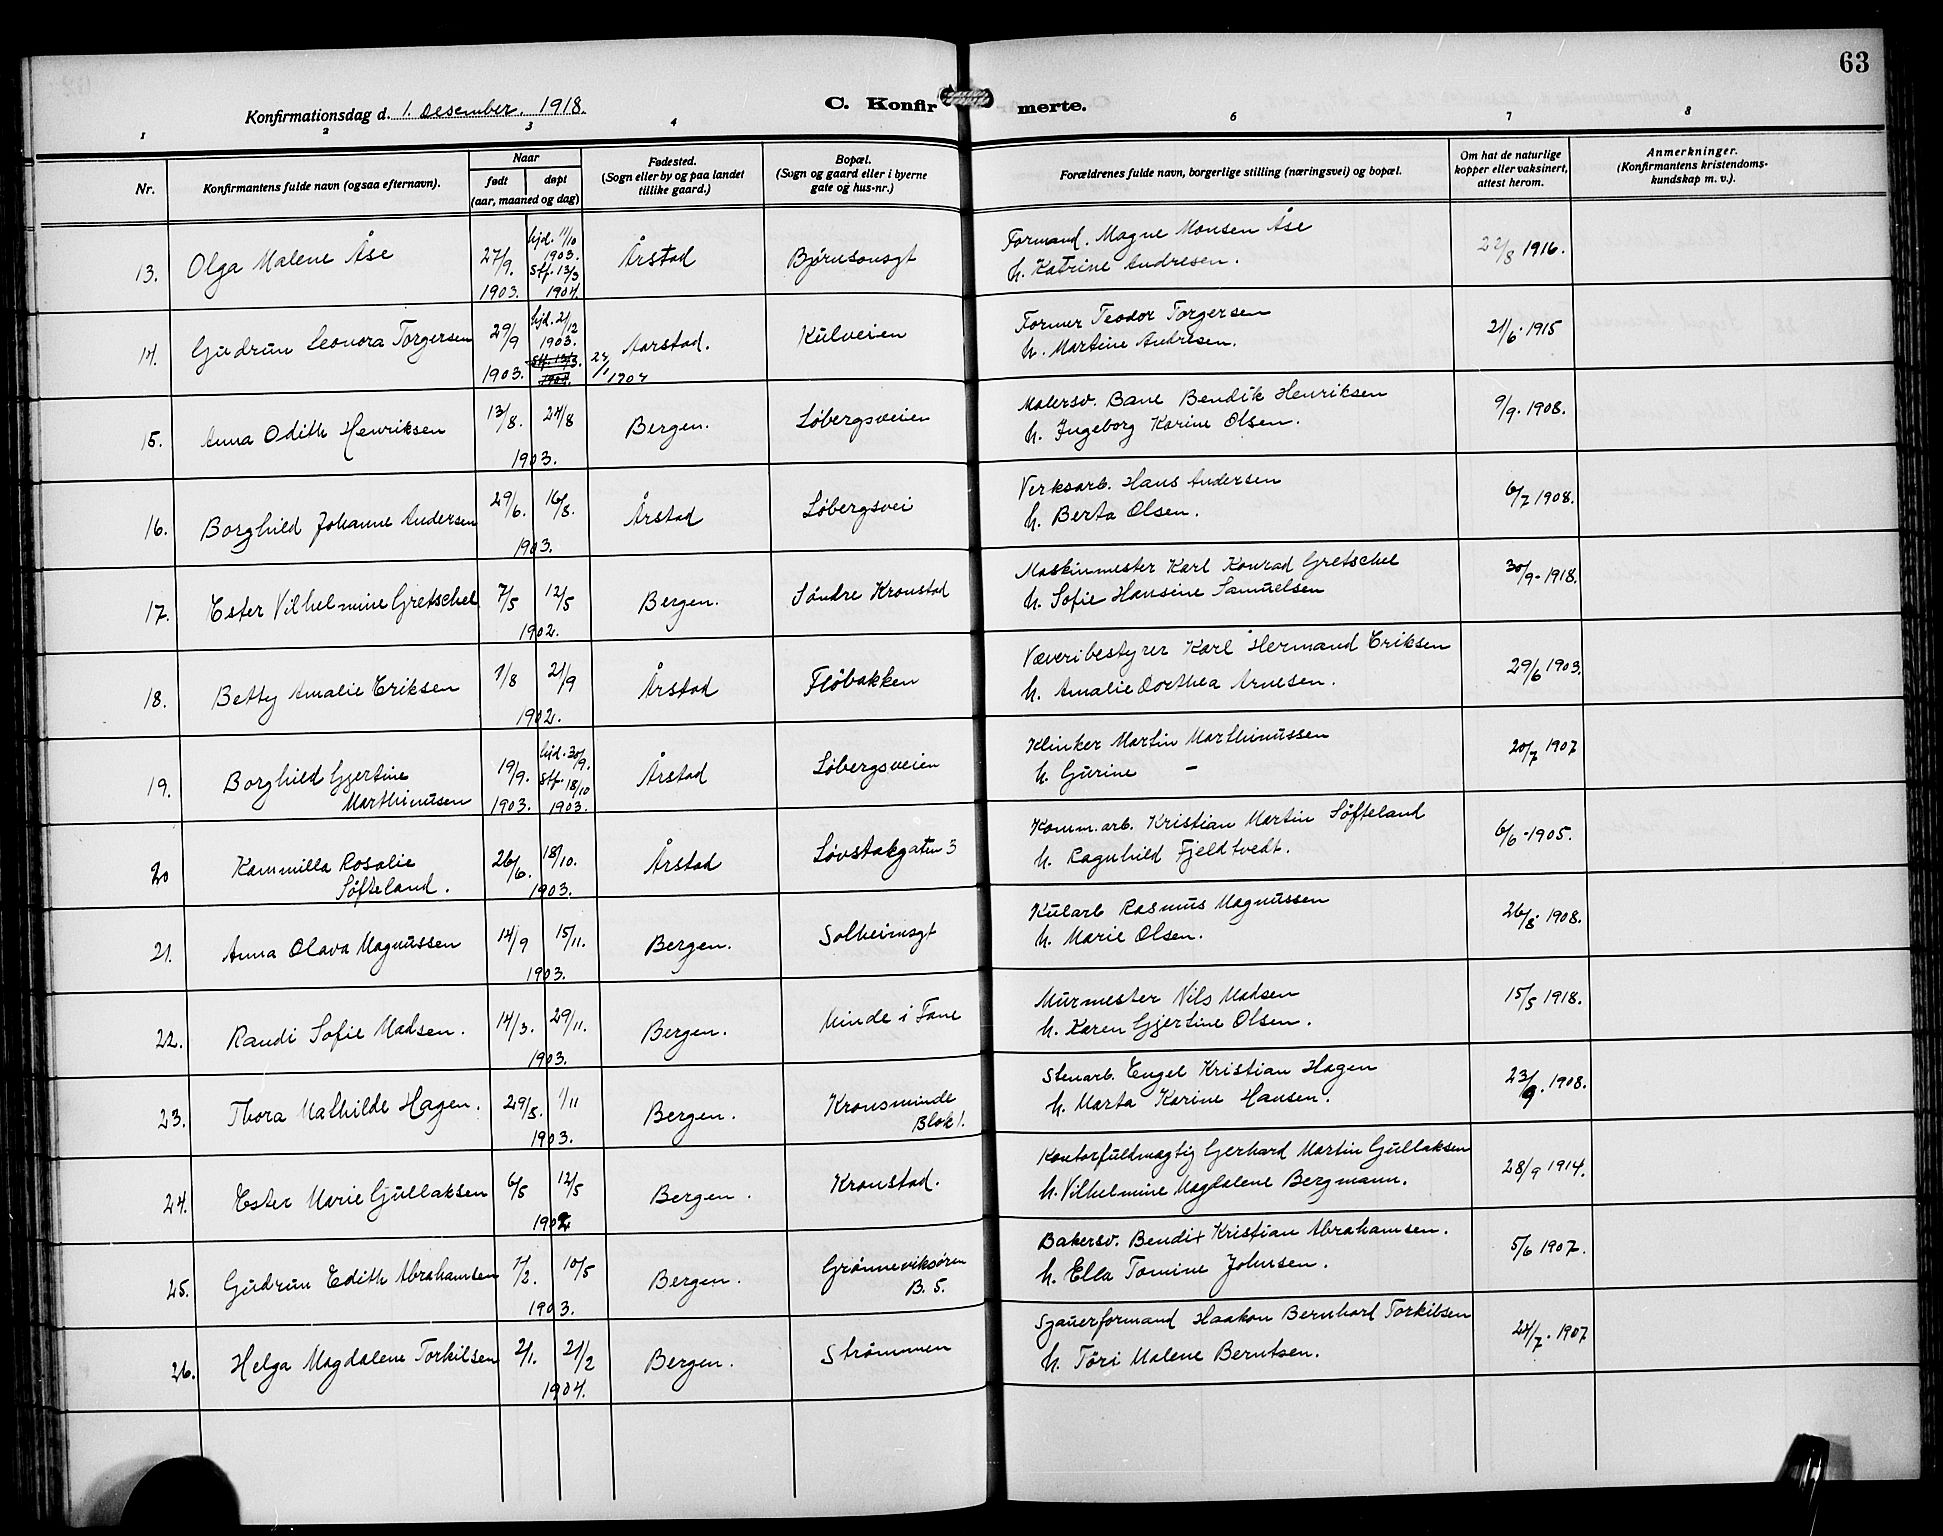 63
Konfirmationsdag d. 1. Desember, 1918.
C. Konfirmerte.
1 2 3 4 6 7 8
Nr.
Konfirmantens fulde navn (ogsaa efternavn).
Naar
født døpt
(aar, maaned og dag)
Fødested.
(Sogn eller by og paa landet
tillike gaard.)
Bopæl.
(Sogn og gaard eller i byerne
gate og hus-nr.)
Forældrenes fulde navn, borgerlige stilling (næringsvei) og bopæl.
Om hat de naturlige
kopper eller vaksinert,
attest herom.
Anmerkninger.
(Konfirmantens kristendoms-
kundskap m. v.).
13. Olga Malene Åse 27/9. 1903. hjd. 11/10 1903. Stf. 13/3 1904. Årstad Bjørnsonsgt Formand. Magne Monsen Åse
h. Katrine Andresen. 22/8 1916.
14. Gudrun Leonora Torgersen 29/9 1903. hjd. 21/12 1903. Stf. 13/3. 1904. 24/1 1904 Aarstad. Kulveien Former Teodor Torgersen
h. Martine Andresen. 21/6. 1915
15. Anna Odith Henriksen 13/8. 24/8 1903. Bergen. Løbergsveien Malersv. Bane Bendik Henriksen
h. Ingeborg Karine Olsen. 9/9. 1908.
16. Borghild Johanne Andersen 29/6. 16/8. 1903. Årstad Løbergsvei Verksarb. Hans Andersen
h. Berta Olsen. 6/7 1908.
17. Ester Vilhelmine Gretschel 7/5 12/5 1902. Bergen. Søndre Kronstad Maskinmester Karl Konrad Gretschel
h. Sofie Hansine Samuelsen 30/9- 1918.
18. Betty Amalie Eriksen 1/8 21/9 1902. Årstad Fløbakken Væveribestyrer Karl Hermand Eriksen
h. Amalie Dorthea Arnesen. 29/6 1903.
19. Borghild Gjertine
Marthinusen 19/9. 1903. hjd. 30/9. Stf. 18/10 1903. Årstad Løbergsveien Klinker Martin Marthinussen
h. Gurine — 20/7 1907
20 Kammilla Rosalie
Søfteland. 26/6. 18/10. 1903. Årstad Løvstakgaten 3 Komm.arb. Kristian Martin Søfteland
h. Ragnhild Fjeldtvedt. 6/6 - 1905.
21. Anna Olava Magnussen 14/9 15/11. 1903. Bergen. Solheimsgt Kularb Rasmus Magnussen
h. Marie Olsen. 26/8. 1908.
22. Randi Sofie Madsen. 14/3. 29/11. 1903. Bergen. Minde i Fane Murmester Nils Madsen
h. Karen Gjertine Olsen. 15/5 1918.
23. Thora Mathilde Hagen. 29/8. 1/11 1903. Bergen. Kronsminde
Blok 1. Stenarb. Engel Kristian Hagen
h. Marta Karine Hansen. 23/9. 1908.
24. Ester Marie Gullaksen 6/5 12/5 Bergen. Kronstad. Kontorfuldmægtig Gerhard Martin Gullaksen
h. Vilhelmine Magdalene Bergmann. 28/9 1914.
25. Gudrun Edith Abrahamsen 7/2. 10/5 1903. Bergen. Grønneviksøren
B. 5. Bakersv. Bendix Kristian Abrahamsen.
h. Ella Tomine Johnsen. 5/6 1907.
26. Helga Magdalene Torkilsen 2/1. 21/2 1904. Bergen. Strømmen Sjauerformand Haakon Bernhard Torkilsen
h. Töri Malene Berntsen. 24/7. 1907